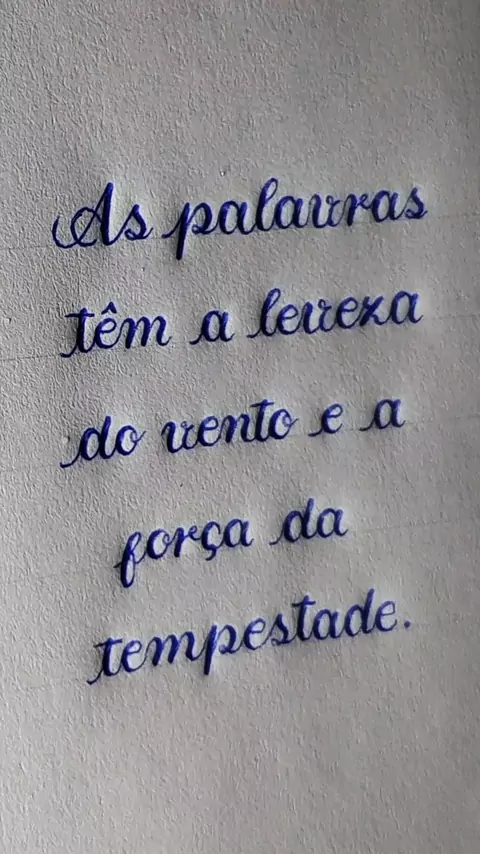 As palavras
têm a leveza
do vento e a
força da
tempestade.